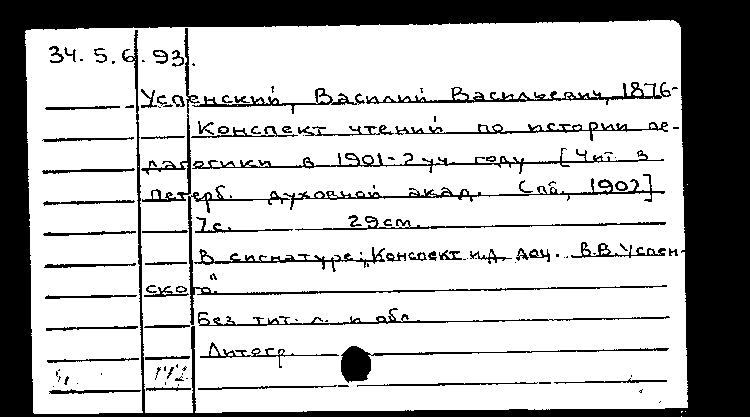 34.5.6.93.
Успенский, Василий Васильевич, 1876-
Конспект чтений по истории пе-
дагогики в 1901-2 уч. году [Чит. в
Петерб. духовной акад. Спб., 1902]
7с. 29см.
В сигнатуре: "Конспект и.д. доц. В.В. Успен-
ского."
Без тит. л. и обл.
Литогр.